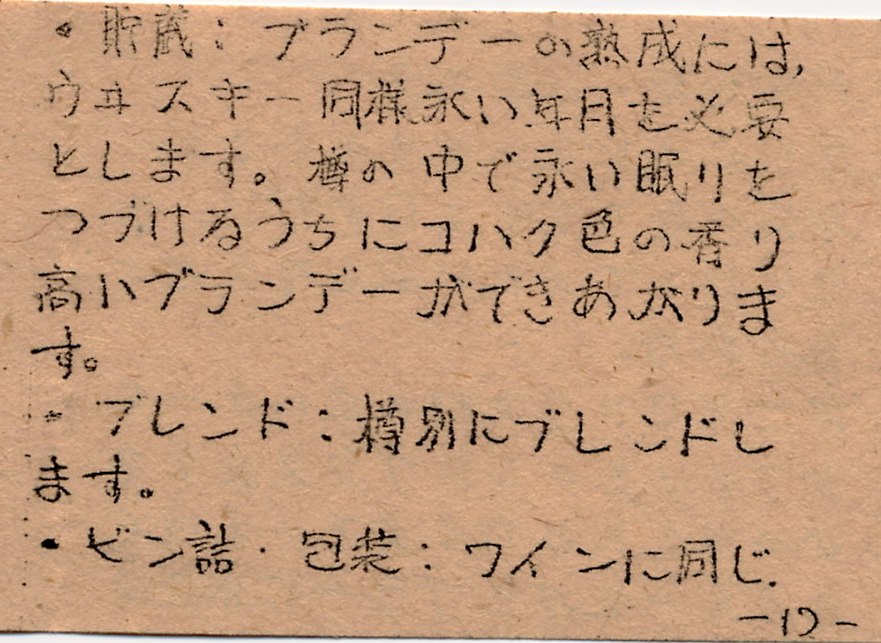 ・貯蔵：ブランデーの熟成には,
ウヰスキー同様永い年月を必要
とします。樽の中で永い眠りを
つづけるうちにコハク色の香り
高いブランデーができあがりま
す。
・ブレンド：樽別にブレンドし
ます。
・ビン詰・包装：ワインに同じ.
-17-